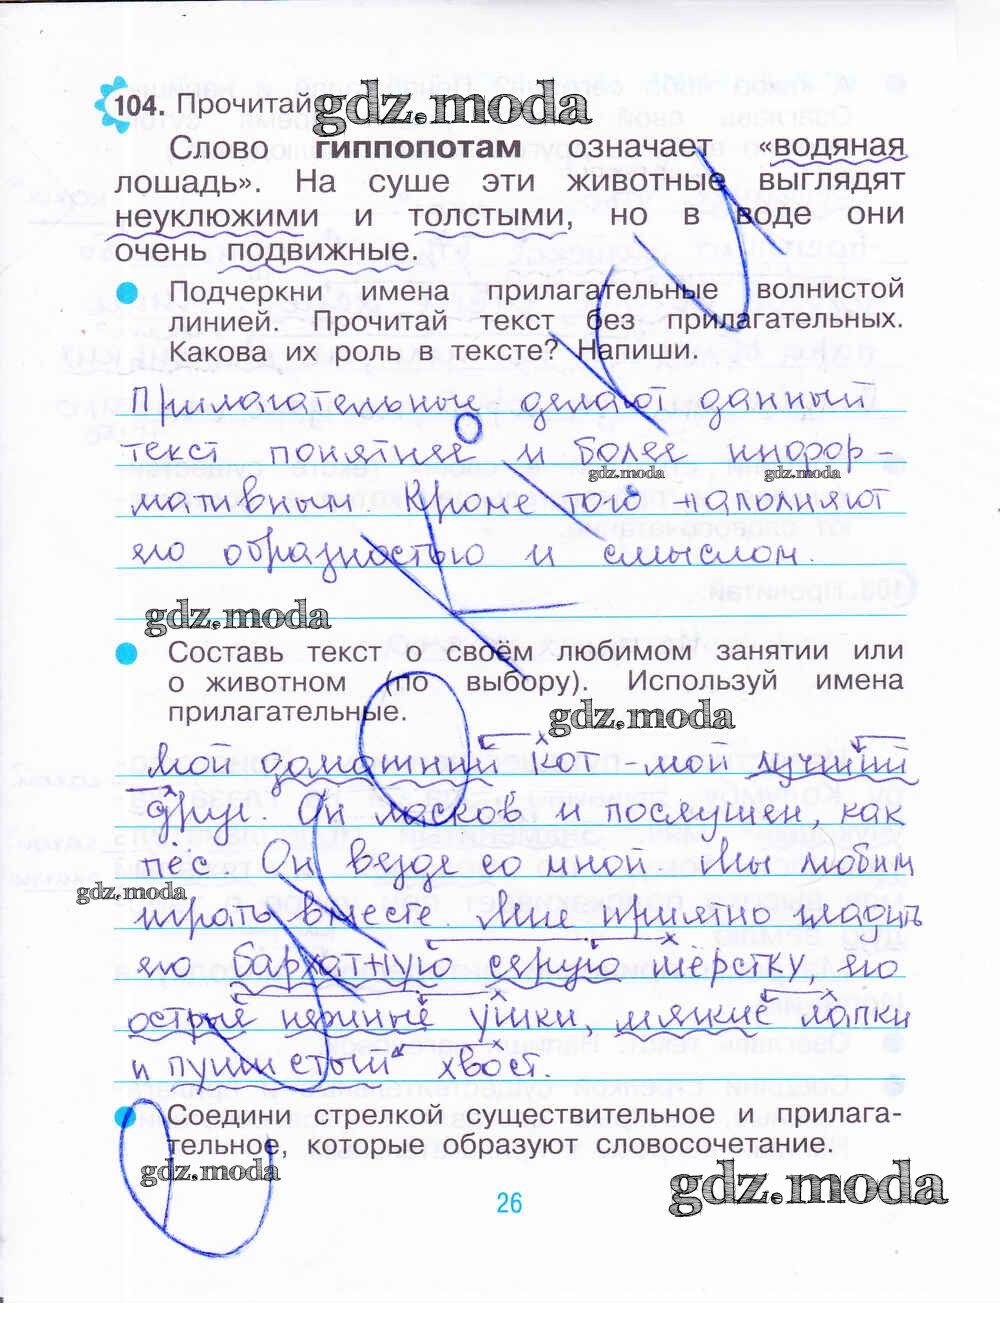 104. Прочитай
gdz.moda
Слово гиппопотам означает «водяная
лошадь». На суше эти животные выглядят
неуклюжими и толстыми, но в воде они
очень подвижные.
Подчеркни имена прилагательные волнистой
линией. Прочитай текст без прилагательных.
Какова их роль в тексте? Напиши.
Прилагательные делают данный
текст понятнее и более инфор-
gdz.moda gdz.moda
мативным. Кроме того наполняют
его образностью и смыслом.
gdz.moda
Составь текст о своём любимом занятии или
о животном (по выбору). Используй имена
прилагательные.
gdz.moda
Мой домашний кот - мой лучший
друг. Он ласков и послушен, как
пёс. Он везде со мной. Мы любим
gdz.moda
играть вместе. Мне приятно гладить
его бархатную серую шёрстку, его
острые нежные ушки, мягкие лапки
и пушистый хвост.
Соедини стрелкой существительное и прилага-
тельное, которые образуют словосочетание.
gdz.moda
gdz.moda
26